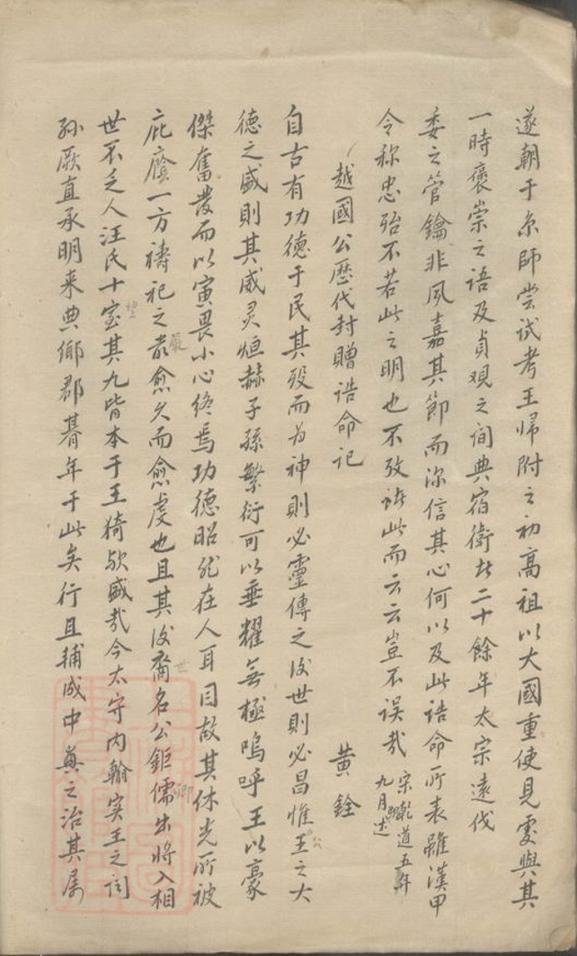 遂朝于京師嘗試考王帰附之初高祖以大國重使見處與其
一時褒崇之语及貞观之间典宿衛比二十餘年太宗遠伐
委之管鑰非夙嘉其節而深信其心何以及此诰命所表雖漢甲
令称忠殆不若此之明也不攷诸此而云云岂不误哉 宋乾道五年九月述
越國公歷代封贈诰命记 黄銓
自古有功德于民其殁而为神则必靈傳之後世则必昌惟王之大
德之盛则其威灵烜赫子孫繁衍可以垂耀無極嗚呼王以豪
傑奮发而以寅畏小心终焉功德昭然在人耳目故其休光所被
庇廕一方禱祀之嚴愈久而愈虔也且其後裔名公鉅儒出將入相
世不乏人汪氏十室其九皆本于王猗欤盛哉今太守内翰实王之闻
孙厥直承明来典鄉郡朞年于此矣行且辅成中興之治其属